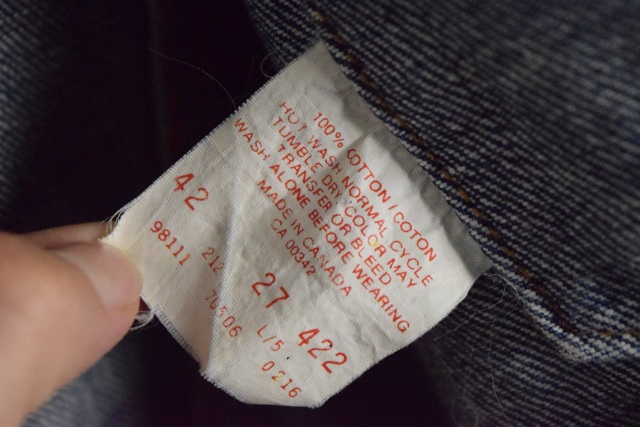 100% COTTON / COTON
HOT WASH NORMAL CYCLE
TUMBLE DRY/COLOR MAY
TRANSFER OR BLEED
WASH ALONE BEFORE WEARING
MADE IN CANADA
CA 00342
42 27 422
98111 212 L/5 0216